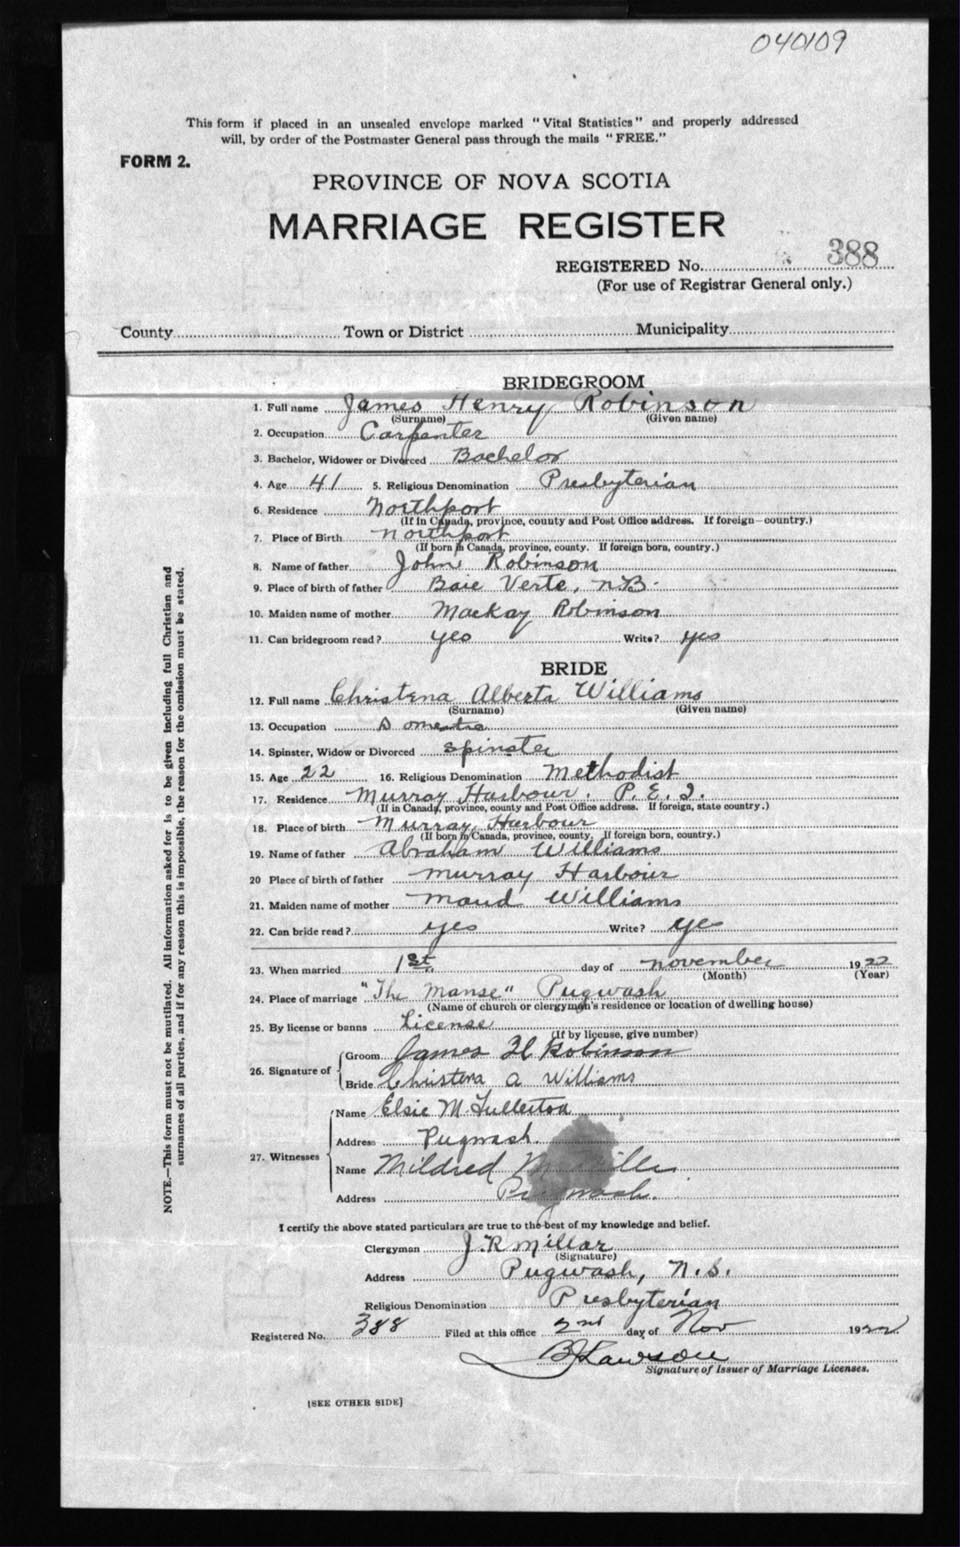 040109
This form if placed in an unsealed envelope marked "Vital Statistics" and properly addressed
will, by order of the Postmaster General pass through the mails "FREE."
FORM 2.
PROVINCE OF NOVA SCOTIA
MARRIAGE REGISTER
REGISTERED No. 388
(For use of Registrar General only.)
County Town or District Municipality
BRIDEGROOM
1. Full name James Henry Robinson
(Surname) (Given name)
2. Occupation Carpenter
3. Bachelor, Widower or Divorced Bachelor
4. Age 41 5. Religious Denomination Presbyterian
6. Residence Northport
(If in Canada, province, county and Post Office address. If foreign—country.)
7. Place of Birth Northport
(If born in Canada, province, county. If foreign born, country.)
8. Name of father John Robinson
9. Place of birth of father Baie Verte, N.B.
10. Maiden name of mother Mackay Robinson
11. Can bridegroom read? yes Write? yes
BRIDE
12. Full name Christena Alberta Williams
(Surname) (Given name)
13. Occupation Domestic
14. Spinster, Widow or Divorced Spinster
15. Age 22 16. Religious Denomination Methodist
17. Residence Murray Harbour. P.E.I.
(If in Canada, province, county and Post Office address. If foreign, state country.)
18. Place of birth Murray Harbour
(If born in Canada, province, county. If foreign born, country.)
19. Name of father Abraham Williams
20 Place of birth of father Murray Harbour
21. Maiden name of mother Maud Williams
22. Can bride read? yes Write? yes
23. When married 1st. day of November 1922
(Month) (Year)
24. Place of marriage "The Manse" Pugwash
(Name of church or clergyman's residence or location of dwelling house)
25. By license or banns License
(If by license, give number)
26. Signature of
Groom James H Robinson
Bride Christena A Williams
27. Witnesses
Name Elsie M. Fullerton
Address Pugwash.
Name Mildred
Address Pugwash.
I certify the above stated particulars are true to the best of my knowledge and belief.
Clergyman J. R. Millar
(Signature)
Address Pugwash, N.S.
Religious Denomination Presbyterian
Registered No. 388 Filed at this office 2nd day of Nov 1922
Lawson
Signature of Issuer of Marriage Licenses.
[SEE OTHER SIDE]
NOTE.—This form must not be mutilated. All information asked for is to be given including full Christian and
surnames of all parties, and if for any reason this is impossible, the reason for the omission must be stated.